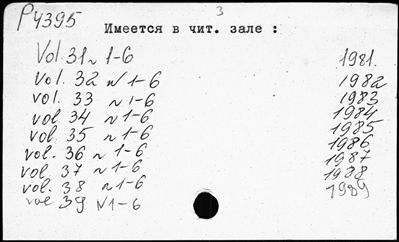 P4395
3
Имеется в чит. зале :
Vol. 31 N 1-6 1981.
Vol. 32 N 1-6 1982
vol. 33 N 1-6 1983
vol. 34 N 1-6 1984
vol. 35 N 1-6 1985
vol. 36 N 1-6 1986
vol. 37 N 1-6 1987
vol. 38 N 1-6 1988
vol 39 N 1-6 1989